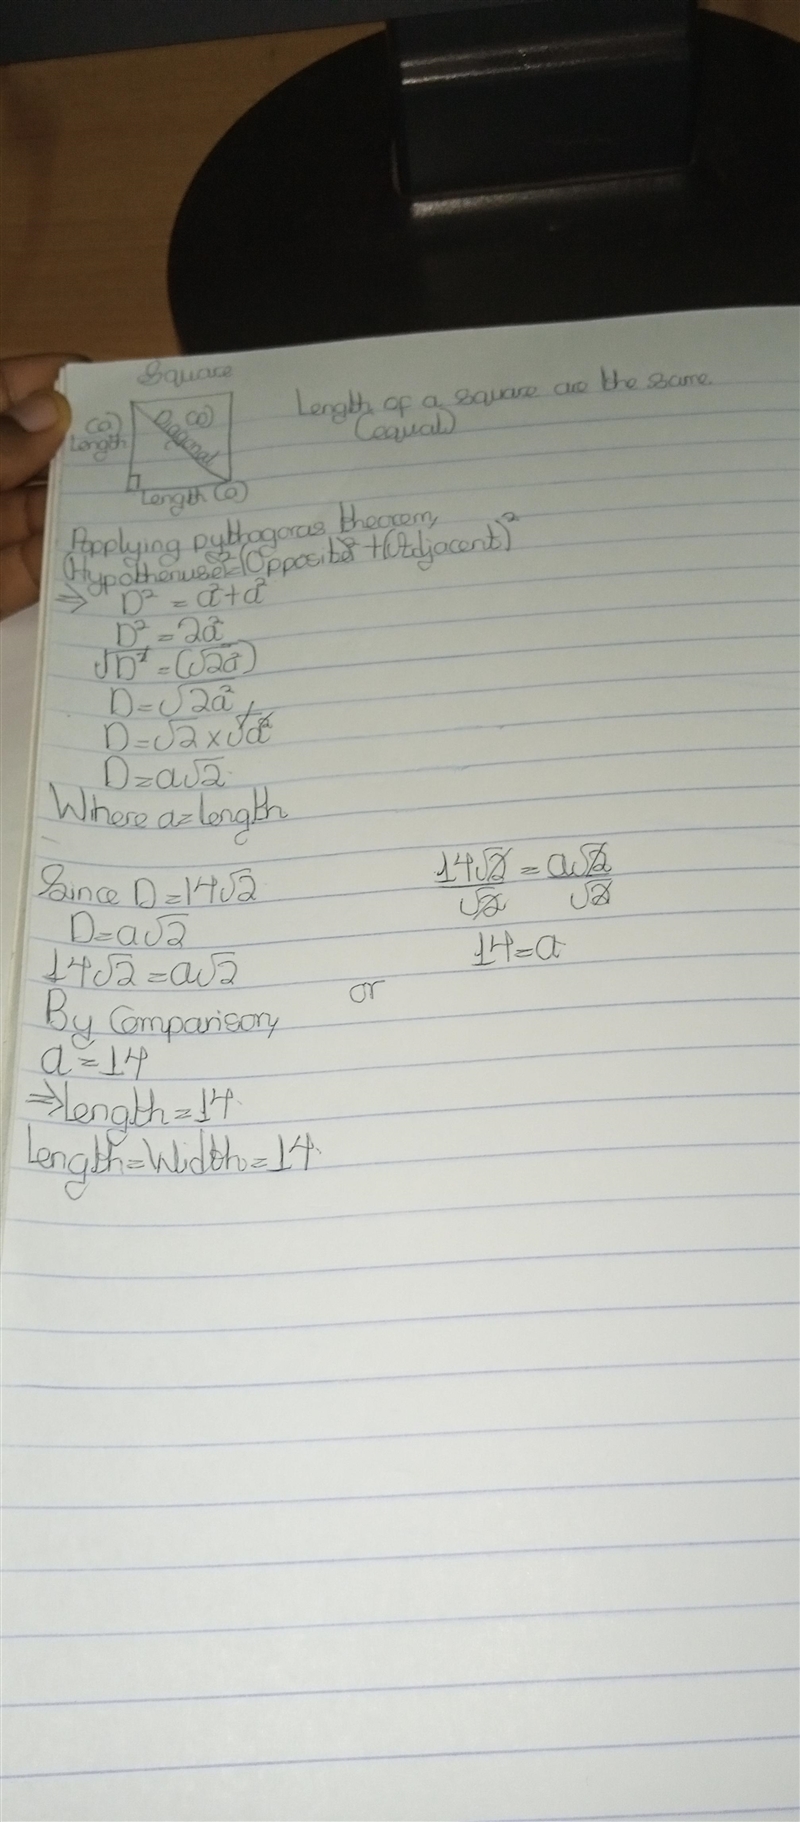 Square
Length of a square are the same.
(equal)
(a)
Length
Diagonal
(d)
Length (a)
Applying pythagoras theorem,
(Hypothenuse)²=(Opposite)²+(Adjacent)²
⇒ D² = a²+a²
D² = 2a²
√D² = (√2a²)
D=√2a²
D=√2×√a²
D=a√2
Where a=length
Since D=14√2
D=a√2
14√2=a√2
By Comparison,
a=14
⇒Length=14
Length=Width=14.
or
14√2 = a√2
√2 √2
14=a